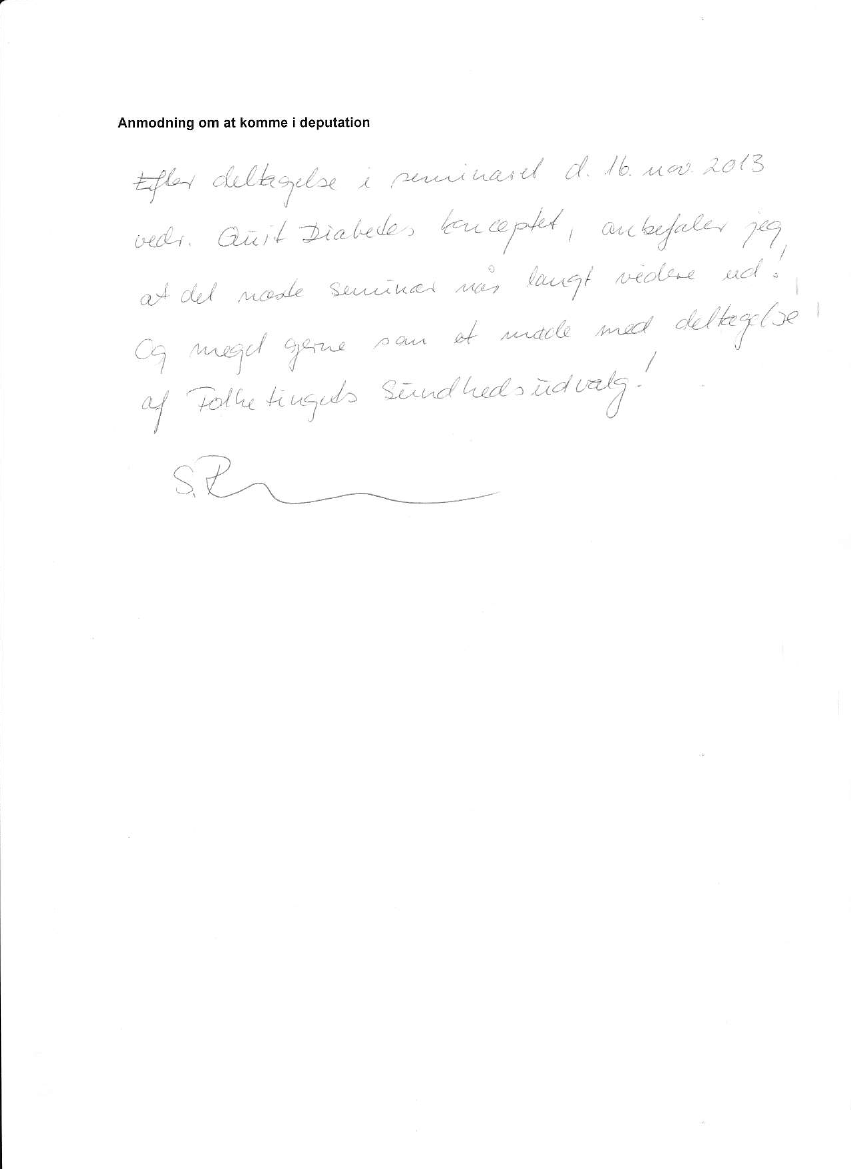 Anmodning om at komme i deputation
Efter deltagelse i seminaret d. 16. nov. 2013
vedr. Quit Diabetes konceptet, anbefaler jeg,
at det næste seminar når langt videre ud!
Og meget gerne som et møde med deltagelse
af Folketingets Sundhedsudvalg!